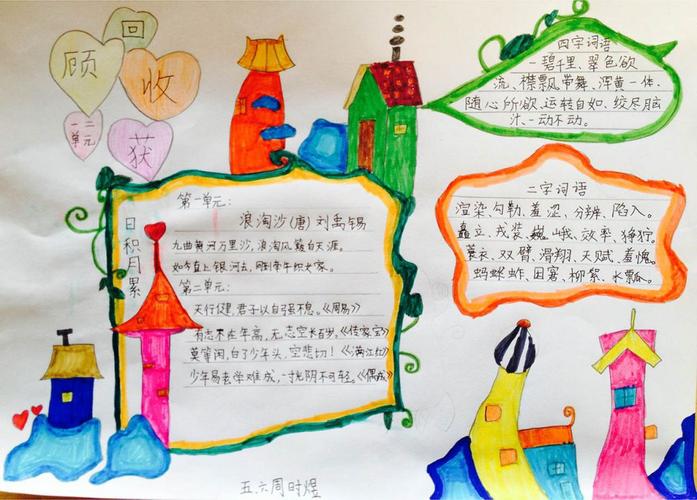 回
顾
收
获
一二
单元
日积月累
第一单元:
浪淘沙(唐)刘禹锡
九曲黄河万里沙,浪淘风簸自天涯。
如今直上银河去,同到牵牛织女家。
第二单元:
天行健,君子以自强不息。《周易》
有志不在年高,无志空长百岁。《传家宝》
莫等闲,白了少年头,空悲切!《满江红》
少年易老学难成,一寸光阴不可轻。《偶成》
四字词语
一碧千里、翠色欲
流、襟飘带舞、浑黄一体、
随心所欲、运转自如、绞尽脑
汁、一动不动。
二字词语
渲染、勾勒、羞涩、分辨、陷入。
矗立、戎装、巍峨、效率、狰狞。
蓑衣、双臂、滑翔、天赋、羞愧。
蚂蜥蚱、困窘、柳絮、水瓢。
五六周时煜